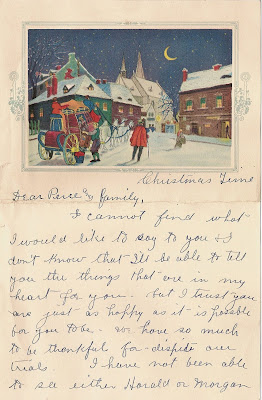 Christmas Time
Dear Pierce & family,
I cannot find what
I would like to say to you & I
don't know that I'll be able to tell
you the things that are in my
heart for you. but I trust you
are just as happy as it is possible
for you to be. so have so much
to be thankful for despite our
trials. I have not been able
to see either Harald or Morgan